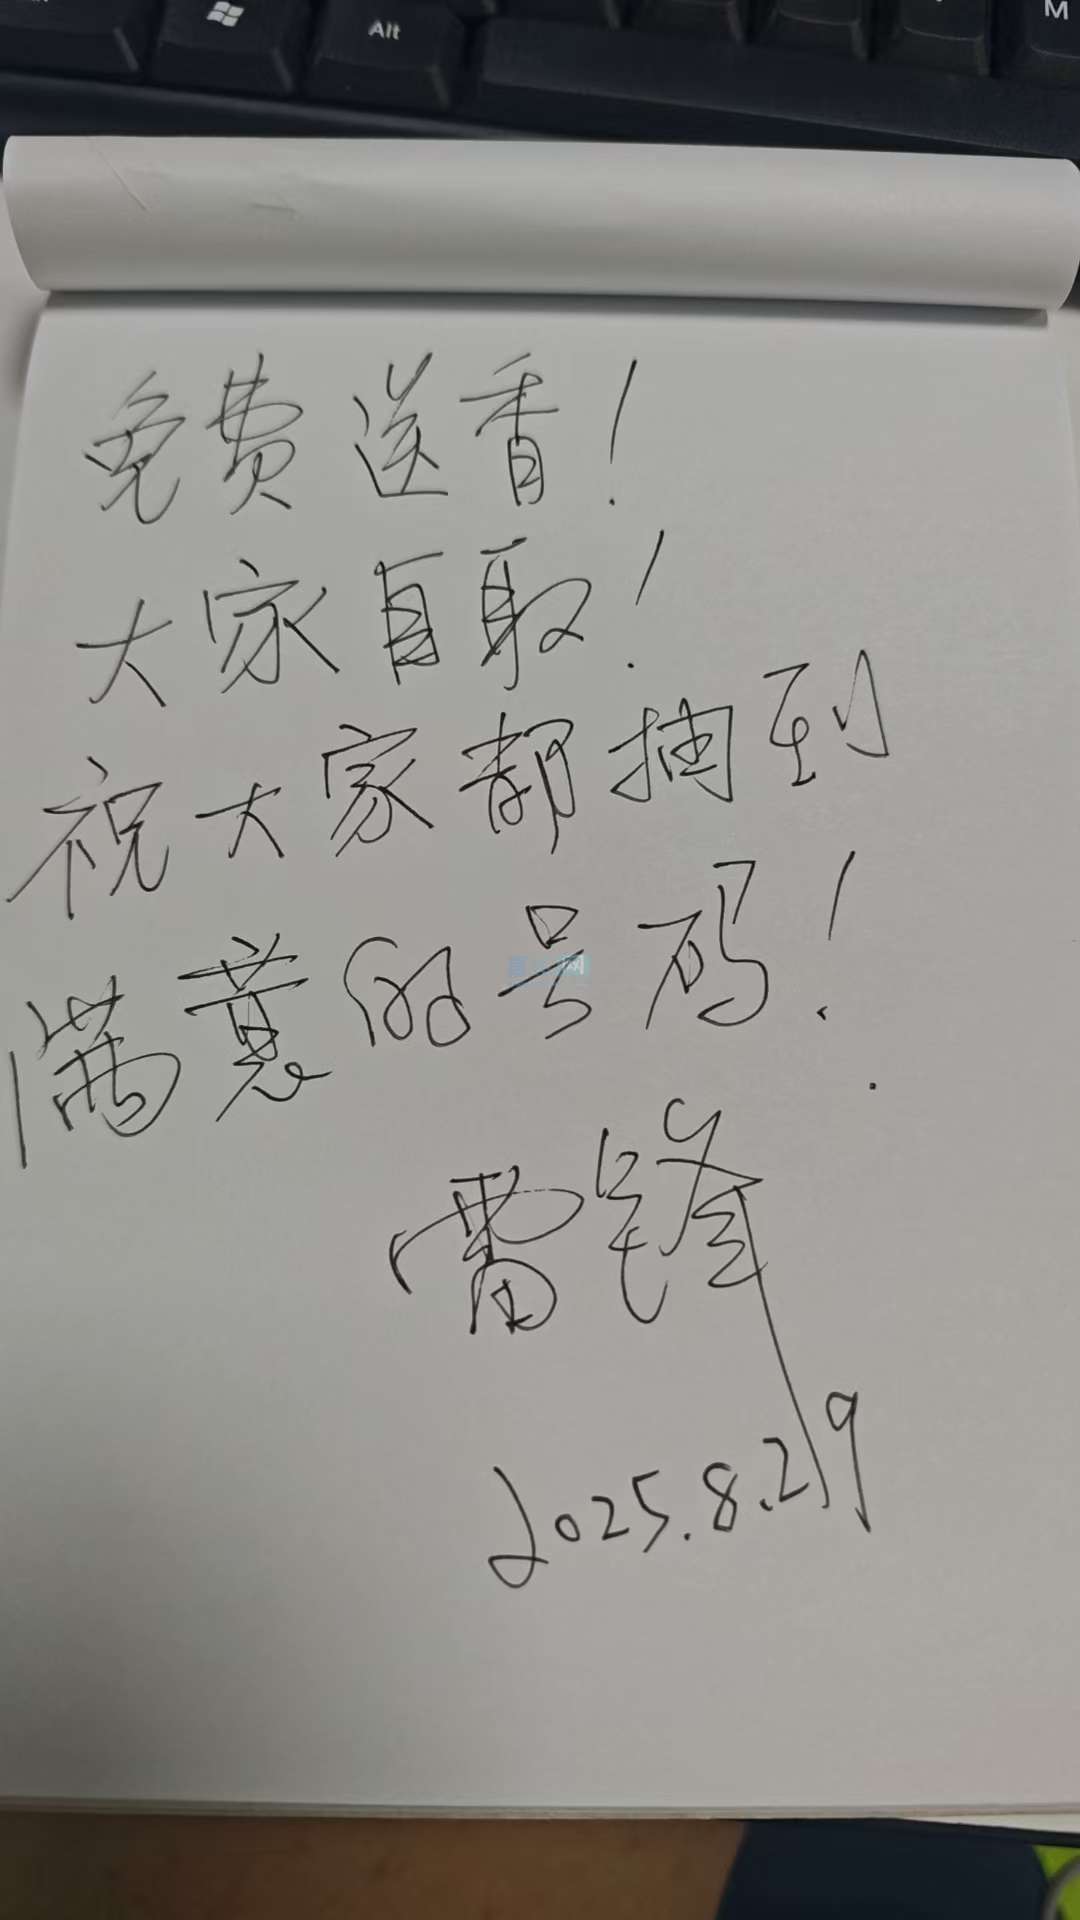 Alt
M
免费送香!
大家自取!
祝大家都抽到
满意的号码!
网
雷锋
2025.8.29